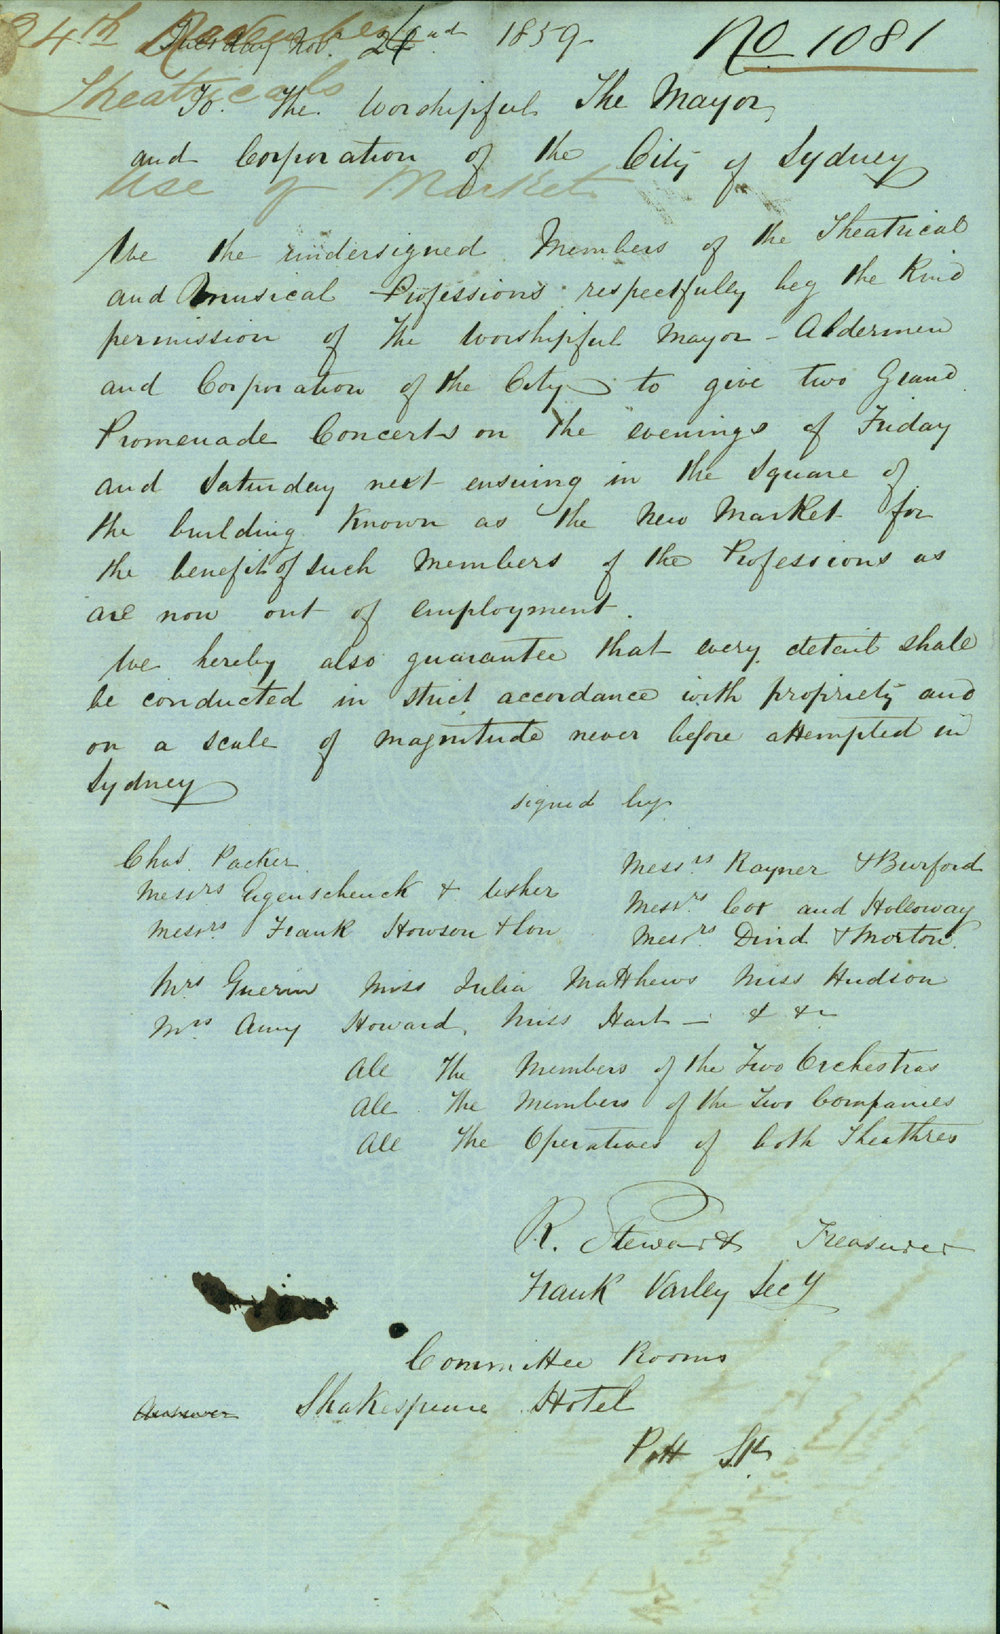 24th November
Tuesday Nov. 1859
No 1081
Theatricals
To The Worshipful The Mayor,
and Corporation of the City of Sydney
Use of Market
We the undersigned Members of the Theatrical
and Musical Professions respectfully beg the Kind
permission of the Worshipful Mayor - Aldermen
and Corporation of the City to give two Grand
Promenade Concerts on the evenings of Friday
and Saturday next ensuing in the Square of
the building Known as the New Market for
the benefit of such Members of the Professions as
are now out of employment.
We hereby also guarantee that every detail shall
be conducted in strict accordance with propriety and
on a scale of magnitude never before attempted in
Sydney
signed by
Chas. Packer
Messrs. Rayner & Burford
Messrs Eigenschenck & Usher
Messrs. Cox and Holloway
Messrs. Frank Howson & Son
Messrs Dind & Morton.
Mrs Guerin Miss Julia Matthews Miss Hudson
Mrs Amy Howard, Miss Hart — & &c
All The Members of the Two Orchestras
All The Members of the Two Companies
All The Operatives of both Theathres
R. Steward Treasurer
Frank Varley Secy
Committee Rooms
Shakespeare Hotel
Pitt St